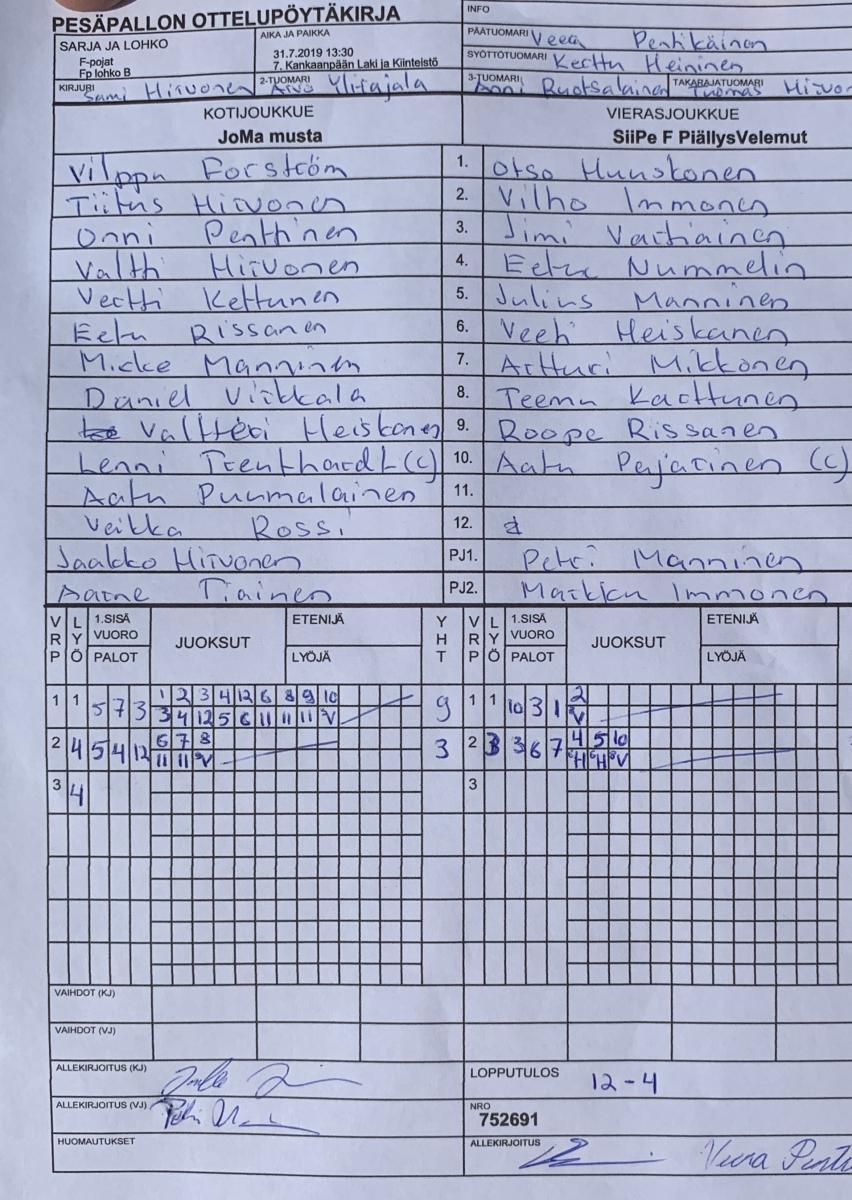 PESÄPALLON OTTELUPÖYTÄKIRJA
INFO
SARJA JA LOHKO
F-pojat
Fp lohko B
AIKA JA PAIKKA
31.7.2019 13:30
7. Kankaanpään Laki ja Kiinteistö
PÄÄTUOMARI Veera Pentikäinen
SYÖTTÖTUOMARI Kerttu Heininen
KIRJURI Sami Hirvonen
2-TUOMARI Arvo Ylitajala
3-TUOMARI Anni Ruotsalainen
TAKARAJATUOMARI Tuomas Hirvo
KOTIJOUKKUE
JoMa musta
VIERASJOUKKUE
SiiPe F PiällysVelemut
Vilppu Forström 1. Otso Huuskonen
Tiitus Hirvonen 2. Vilho Immonen
Onni Penttinen 3. Jimi Vartiainen
Valtti Hirvonen 4. Eetu Nummelin
Vertti Kettunen 5. Julius Manninen
Eetu Rissanen 6. Veeti Heiskanen
Micke Manninen 7. Artturi Mikkonen
Daniel Virkkala 8. Teemu Karttunen
Valtteri Heiskanen 9. Roope Rissanen
Lenni Trenthardt (c) 10. Aatu Parjarinen (c)
Aatu Puumalainen 11.
Veikka Rossi 12.
Jaakko Hirvonen PJ1. Petri Manninen
Aarne Tiainen PJ2. Markku Immonen
VRP LYÖ 1.SISÄ VUORO PALOT JUOKSUT ETENIJÄ LYÖJÄ YHT VRP LYÖ 1.SISÄ VUORO PALOT JUOKSUT ETENIJÄ LYÖJÄ
1 1 5 7 3 1 2 3 4 12 6 8 9 10 9 1 1 10 3 1 2
3 4 12 5 6 11 11 11 V V
2 4 5 4 12 6 7 8 3 2 3 3 6 7 4 5 10
11 11 V H H V
3 4 3
VAIHDOT (KJ)
VAIHDOT (VJ)
ALLEKIRJOITUS (KJ)
LOPPUTULOS 12-4
ALLEKIRJOITUS (VJ)
NRO
752691
HUOMAUTUKSET
ALLEKIRJOITUS Veera